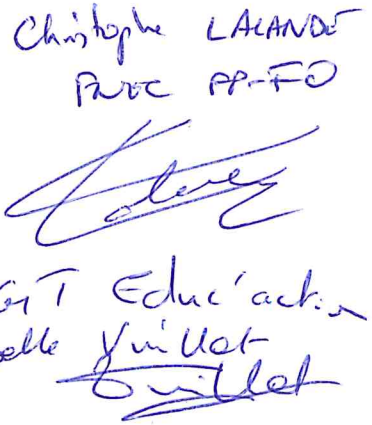 Christophe LALANDE
FNEC FP-FO
CGT Educ'action
elle Vuillot
Vuillot